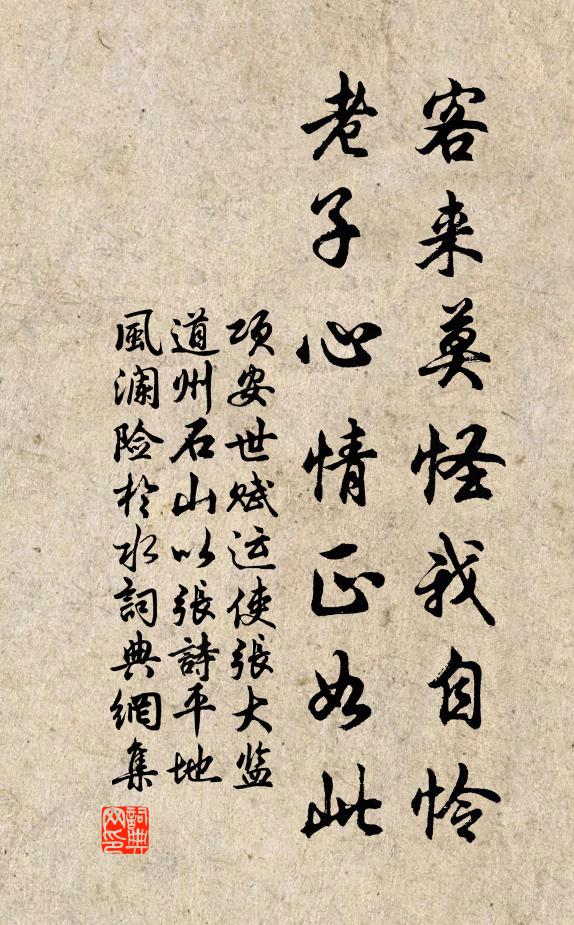 客来莫怪我自怜
老子心情正如此
项安世赋运使張大监
道州石山以張詩平地
風澜险於水詞典網集
詞典
网印